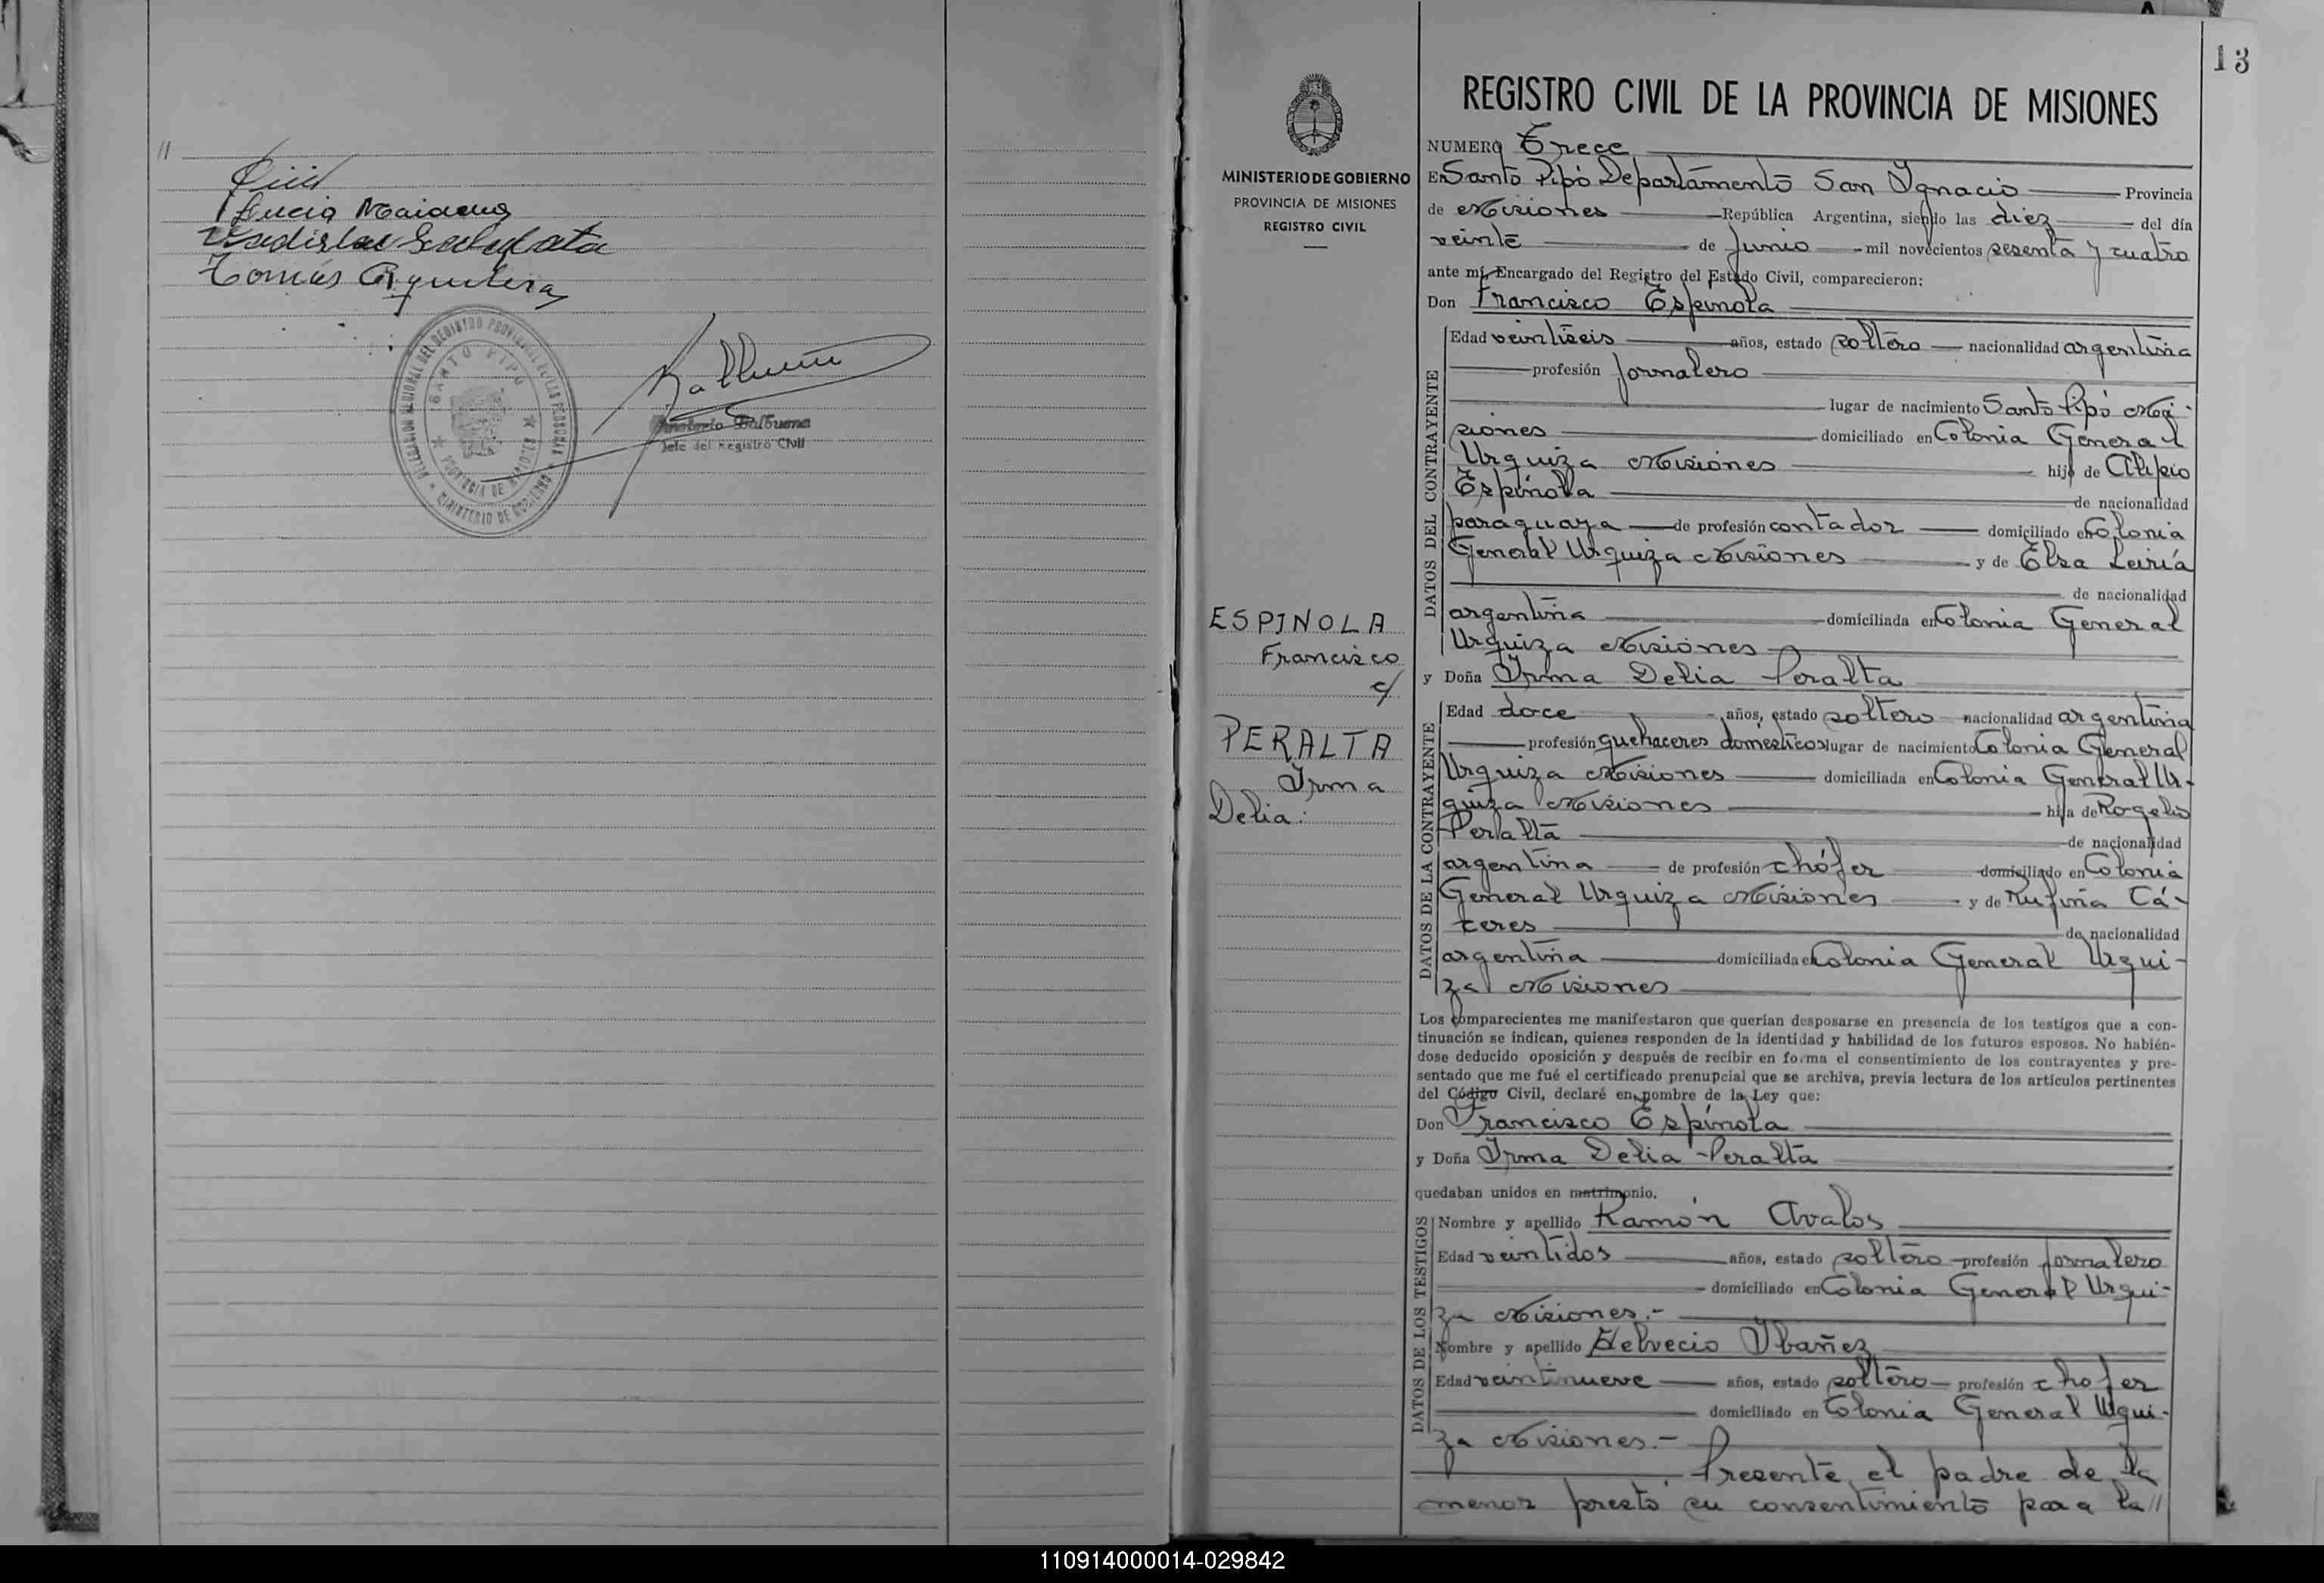 //
Lucia
Tomás Aquilera
DELEGACION REGIONAL DEL REGISTRO PROVINCIAL DE LAS PERSONAS
SANTO PIPO
PROVINCIA DE MISIONES
MINISTERIO DE GOBIERNO
Balbuena
Jefe del Registro Civil
13
MINISTERIO DE GOBIERNO
PROVINCIA DE MISIONES
REGISTRO CIVIL
ESPINOLA
Francisco
c/
PERALTA
Irma
Delia.
REGISTRO CIVIL DE LA PROVINCIA DE MISIONES
NUMERO Trece
En Santo Pipó Departamento San Ygnacio Provincia
de Misiones República Argentina, siendo las diez del día
veinte de Junio mil novecientos sesenta y cuatro
ante mí, Encargado del Registro del Estado Civil, comparecieron:
Don Francisco Espinola
DATOS DEL CONTRAYENTE
Edad veintiseis años, estado soltero nacionalidad argentina
profesión Jornalero
lugar de nacimiento Santo Pipó Mi-
siones domiciliado en Colonia General
Urquiza Misiones hijo de Alipio
Espínola de nacionalidad
paraguaya de profesión contador domiciliado en Colonia
General Urquiza Misiones y de Elsa Leiría
de nacionalidad
argentina domiciliada en Colonia General
Urquiza Misiones
y Doña Irma Delia Peralta
DATOS DE LA CONTRAYENTE
Edad doce años, estado soltero nacionalidad argentina
profesión quehaceres domésticos lugar de nacimiento Colonia General
Urquiza Misiones domiciliada en Colonia General Ur-
quiza Misiones hija de Rogelio
Peralta de nacionalidad
argentina de profesión chófer domiciliado en Colonia
General Urquiza Misiones y de Rufina Cá-
ceres de nacionalidad
argentina domiciliada en Colonia General Urqui-
za Misiones
Los comparecientes me manifestaron que querían desposarse en presencia de los testigos que a con-
tinuación se indican, quienes responden de la identidad y habilidad de los futuros esposos. No habién-
dose deducido oposición y después de recibir en forma el consentimiento de los contrayentes y pre-
sentado que me fué el certificado prenupcial que se archiva, previa lectura de los artículos pertinentes
del Código Civil, declaré en nombre de la Ley que:
Don Francisco Espínola
y Doña Irma Delia Peralta
quedaban unidos en matrimonio.
DATOS DE LOS TESTIGOS
Nombre y apellido Ramón Avalos
Edad veintidos años, estado soltero profesión jornalero
domiciliado en Colonia General Urqui-
za Misiones.-
Nombre y apellido Helvecio Ybañez
Edad veintinueve años, estado soltero profesión chofer
domiciliado en Colonia General Urqui-
za Misiones.-
Presente el padre de la
menor prestó su consentimiento para la//
110914000014-029842